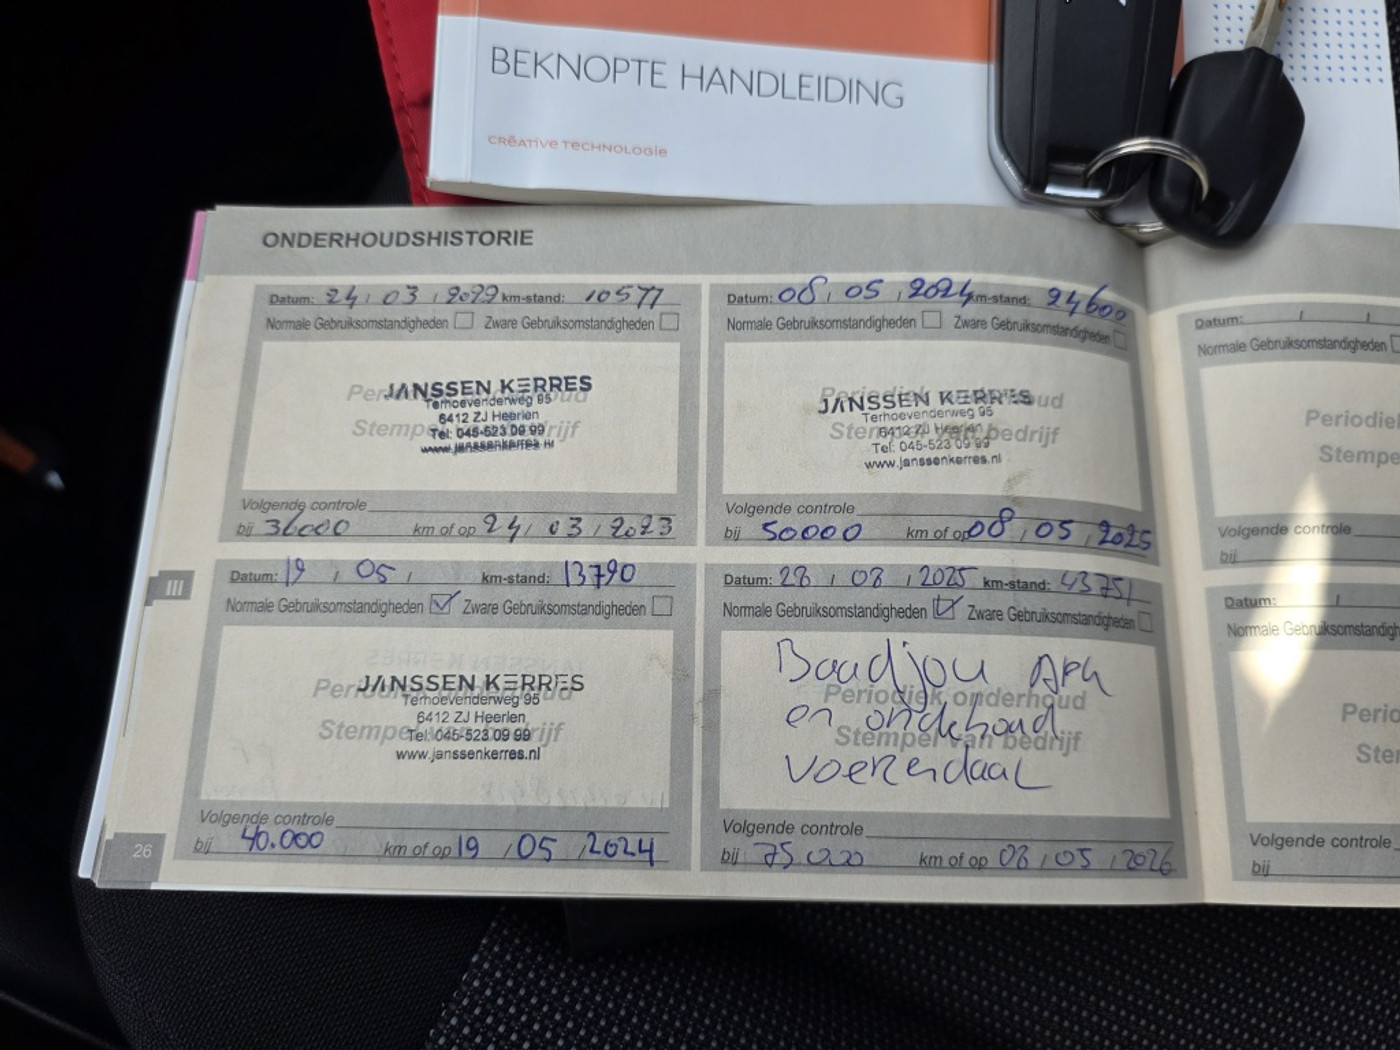 BEKNOPTE HANDLEIDING
CRĒATIVE TECHNOLOGIE
ONDERHOUDSHISTORIE
Datum: 24 / 03 / 2022 km-stand: 10577
Normale Gebruiksomstandigheden Zware Gebruiksomstandigheden
Periodiek onderhoud
Stempel van bedrijf
JANSSEN KERRES
Terhoevenderweg 95
6412 ZJ Heerlen
Tel: 045-523 09 99
www.janssenkerres.nl
Volgende controle
bij 36000 km of op 24 / 03 / 2023
Datum: 08 / 05 / 2024 km-stand: 24600
Normale Gebruiksomstandigheden Zware Gebruiksomstandigheden
Periodiek onderhoud
Stempel van bedrijf
JANSSEN KERRES
Terhoevenderweg 95
6412 ZJ Heerlen
Tel: 045-523 09 99
www.janssenkerres.nl
Volgende controle
bij 50000 km of op 08 / 05 / 2025
Datum: 19 / 05 / km-stand: 13790
Normale Gebruiksomstandigheden Zware Gebruiksomstandigheden
Periodiek onderhoud
Stempel van bedrijf
JANSSEN KERRES
Terhoevenderweg 95
6412 ZJ Heerlen
Tel: 045-523 09 99
www.janssenkerres.nl
Volgende controle
bij 40.000 km of op 19 / 05 / 2024
Datum: 28 / 08 / 2025 km-stand: 43751
Normale Gebruiksomstandigheden Zware Gebruiksomstandigheden
Periodiek onderhoud
Stempel van bedrijf
Baadjou APK
en onderhoud
Voerendaal
Volgende controle
bij 75000 km of op 08 / 05 / 2026
III
26
Datum: / /
Normale Gebruiksomstandigheden
Periodiek
Stempel
Volgende controle
bij
Datum: /
Normale Gebruiksomstandigh
Perio
Ste
Volgende controle
bij